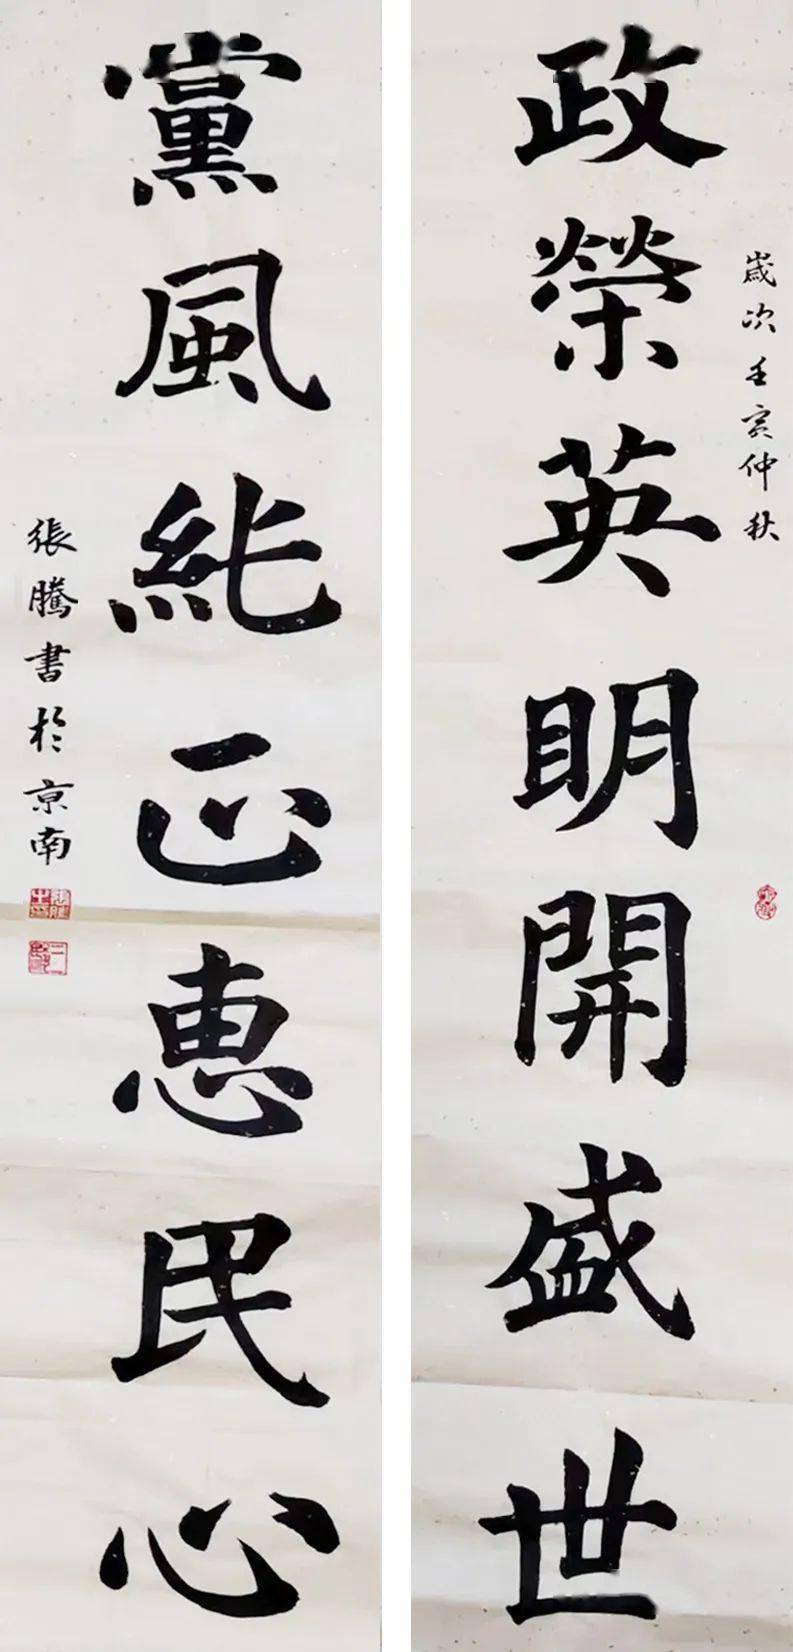 歲次壬寅仲秋
政榮英明開盛世
黨風純正惠民心
張騰書於京南